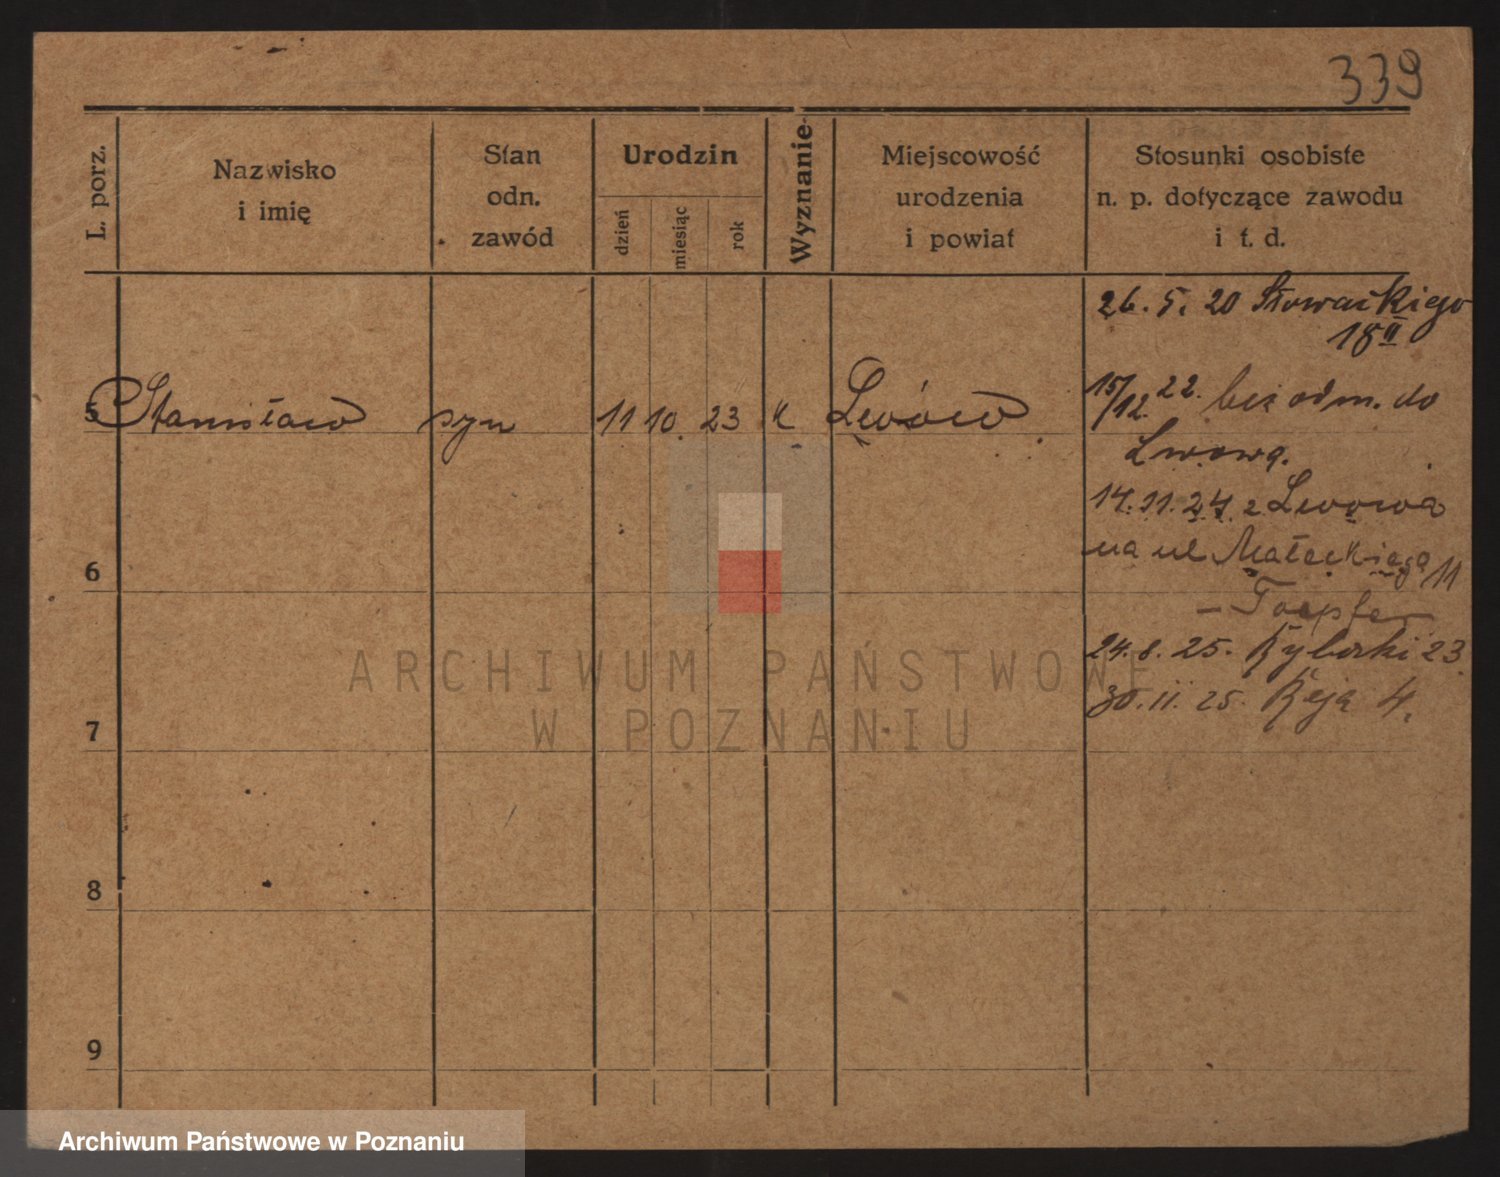 339
L. porz.
Nazwisko
i imię
Stan
odn.
zawód
Urodzin
dzień
miesiąc
rok
Wyznanie
Miejscowość
urodzenia
i powiat
Stosunki osobiste
n. p. dotyczące zawodu
i t. d.
26. 5. 20 Słowackiego
18 II
5 Stanisław syn 11 10. 23 K Lwów
15/12. 22. bez odm. do
Lwowa.
14. 11. 24. z Lwowa
na ul Małeckiego 11
- Toepfer
24. 8. 25. Rybaki 23.
30. 11. 25. Reja 4.
6
7
8
9
ARCHIWUM PAŃSTWOWE
W POZNANIU
Archiwum Państwowe w Poznaniu